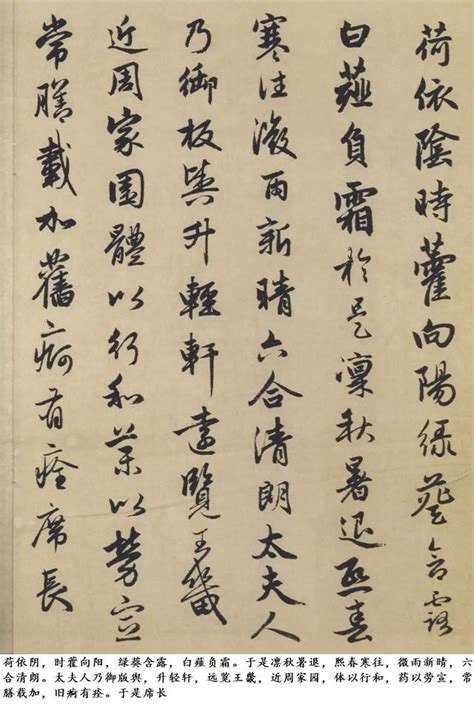 荷依陰時藿向陽綠葵含露
白薤負霜於是凜秋暑退熙春
寒往微雨新晴六合清朗太夫人
乃御板輿升輕軒遠覽王畿
近周家園體以行和藥以勞宣
常膳載加舊痾有痊席長
荷依阴，时藿向阳，绿葵含露，白薤负霜。于是凛秋暑退，熙春寒往，微雨新晴，六
合清朗。太夫人乃御版舆，升轻轩，远览王畿，近周家园，体以行和，药以劳宣，常
膳载加，旧痾有痊。于是席长